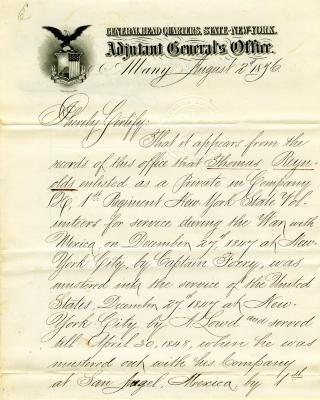 GENERAL HEAD QUARTERS, STATE-NEW-YORK,
Adjutant General's Office.
Albany August 2d 1876.
I hereby Certify:
That it appears from the
records of this office that Thomas Reyn-
olds enlisted as a Private in Company
1st Regiment New York State Vol-
unteers for service during the War with
Mexico, on December 27th 1847 at New-
York City, by Captain Forry, was
mustered into the service of the United
States, December 27th 1847 at New-
York City by and served
till April 30, 1848, when he was
mustered out with his Company
at San Angel, Mexico, by 1st